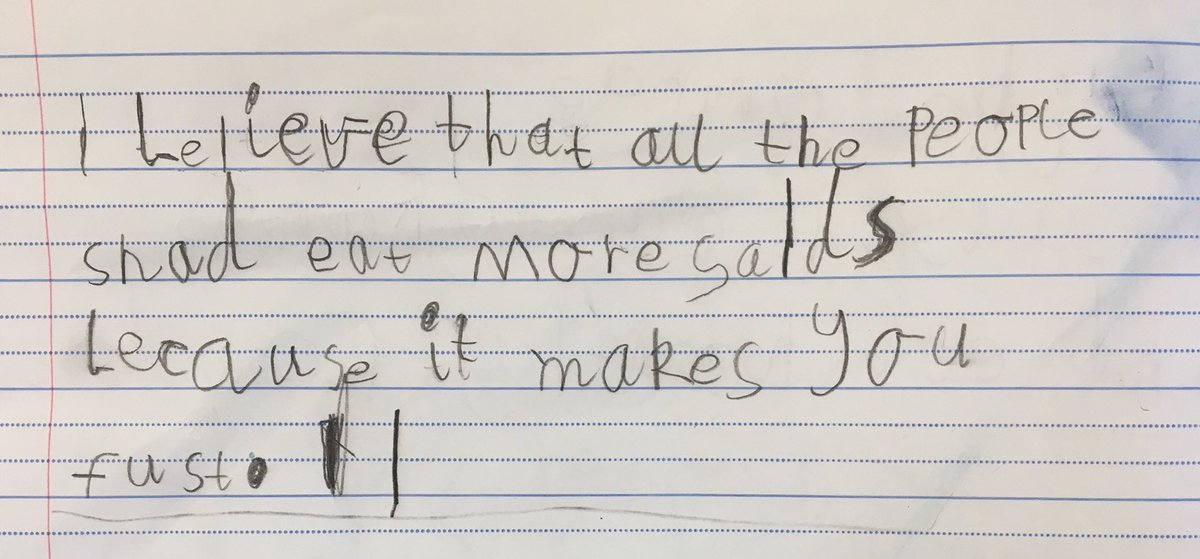 I believe that all the People
shad eat More salds
because it makes you
fust. I